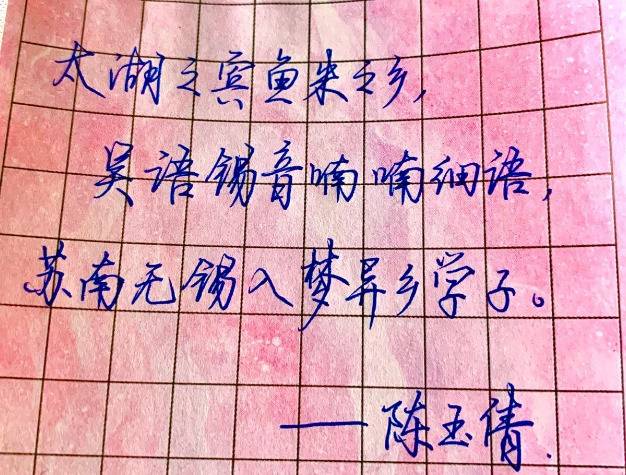 太湖之宾鱼米之乡，
吴语锡音喃喃细语，
苏南无锡入梦异乡学子。
——陈玉倩.